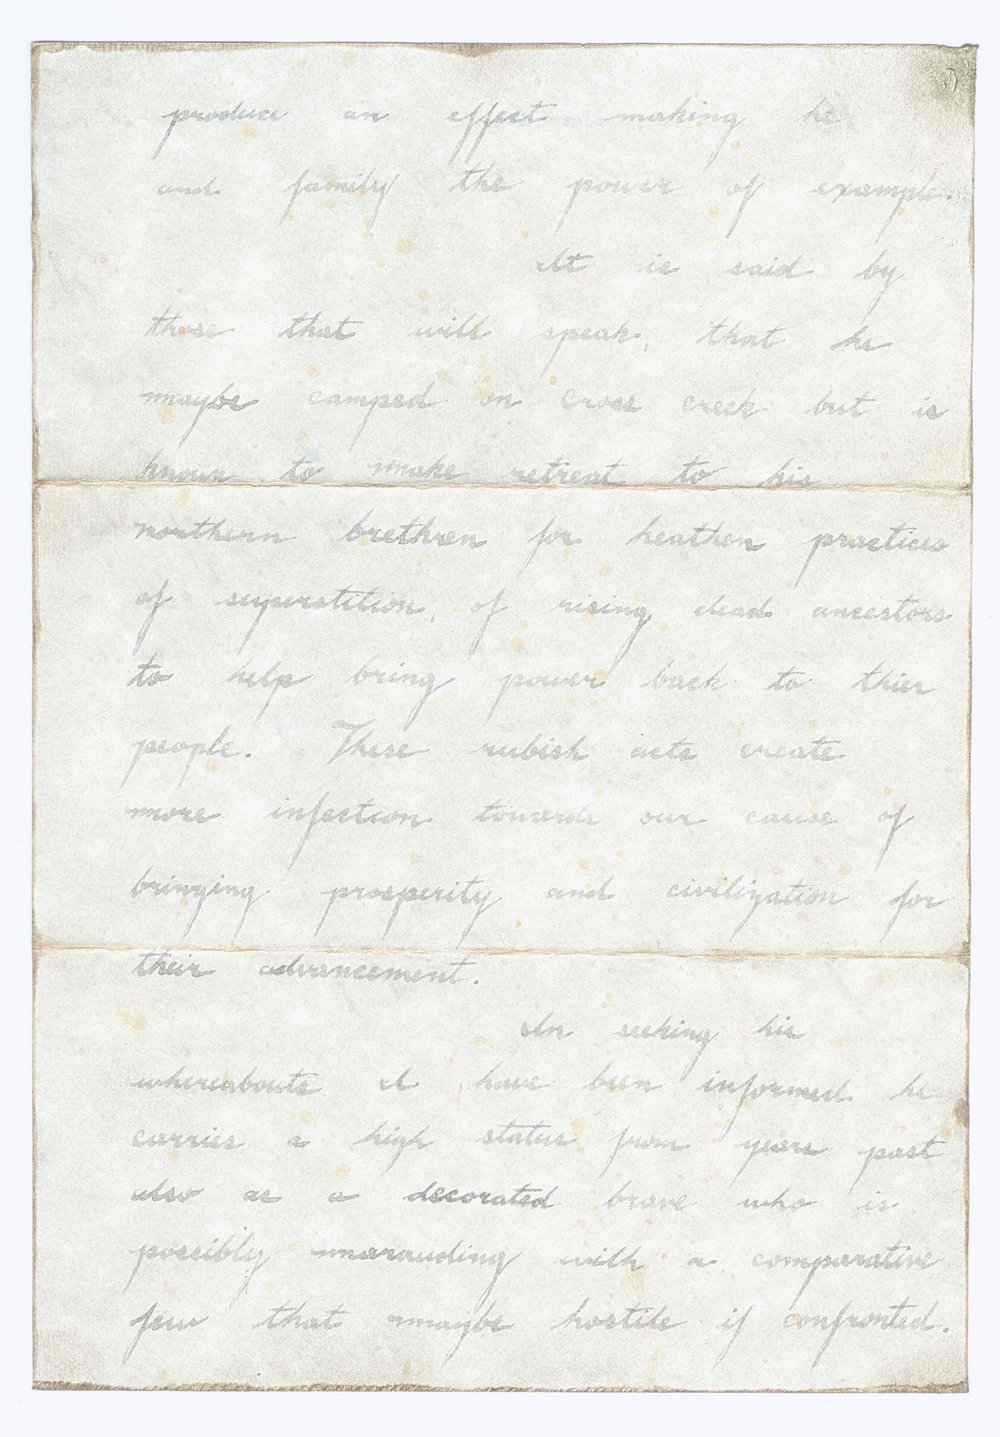 produce an effect making he
and family the power of example.
It is said by
those that will speak, that he
maybe camped on cross creek but is
known to make retreat to his
northern brethren for heathen practices
of superstition, of rising dead ancestors
to help bring power back to thier
people. These rubish acts create
more infection towards our cause of
bringing prosperity and civilization for
their advancement.
In seeking his
whereabouts I have been informed he
carries a high status from years past
also as a decorated brave who is
possibly marauding with a comparative
few that maybe hostile if confronted.